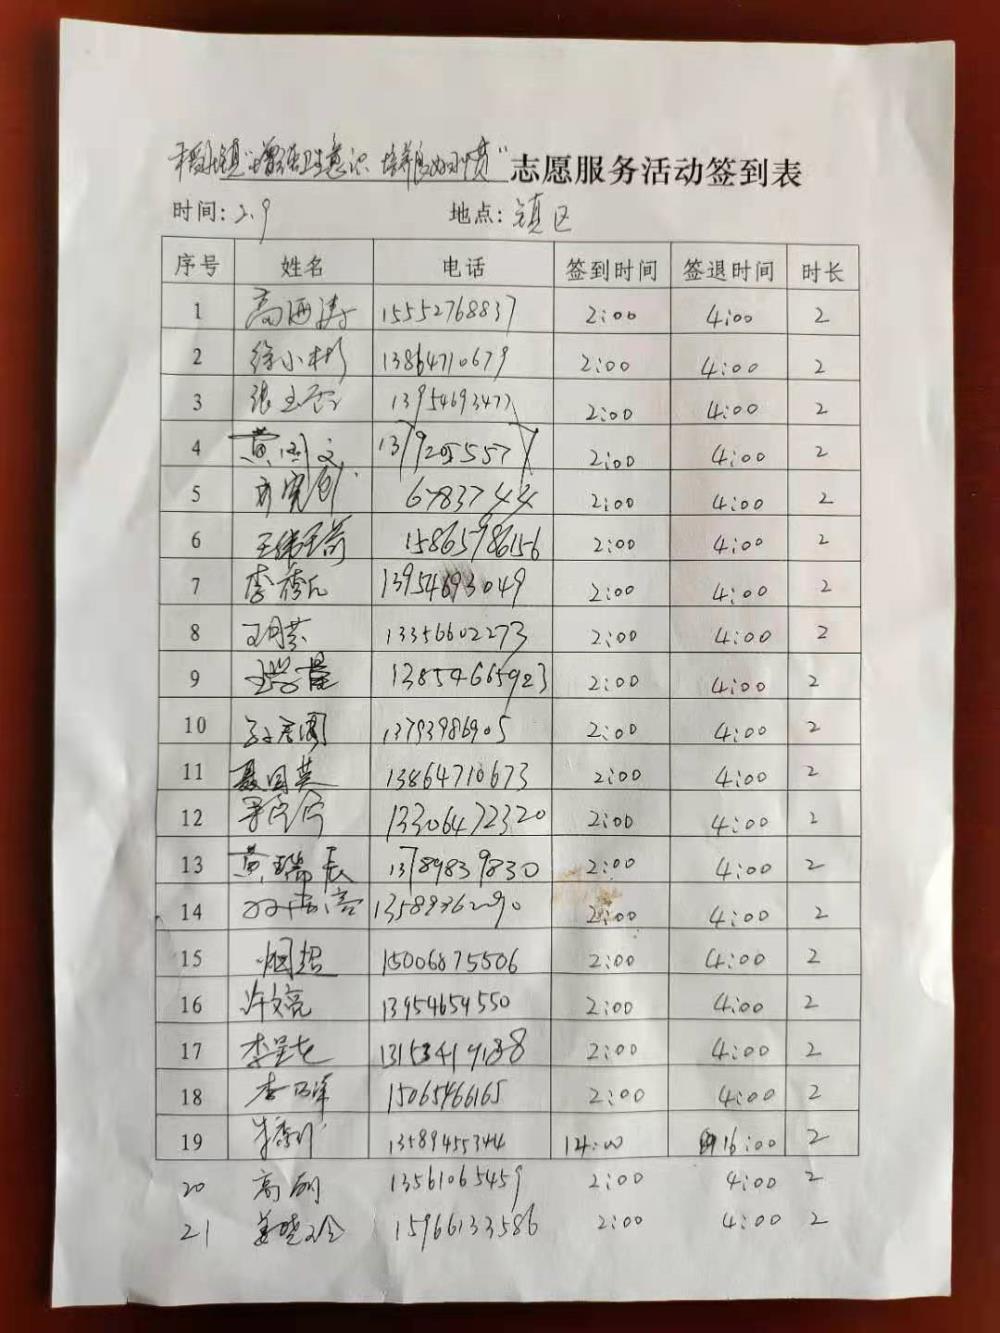 镇"增强卫生意识 培养良好习惯"志愿服务活动签到表
时间: 2.9 地点: 镇区
序号 姓名 电话 签到时间 签退时间 时长
1 高海涛 15552768837 2:00 4:00 2
2 徐小彬 13864710679 2:00 4:00 2
3 张玉 13954693477 2:00 4:00 2
4 黄国文 2:00 4:00 2
5 6783744 2:00 4:00 2
6 王 15865986156 2:00 4:00 2
7 李秀 13954693049 2:00 4:00 2
8 王月芬 13356602273 2:00 4:00 2
9 13854665923 2:00 4:00 2
10 13793986905 2:00 4:00 2
11 聂国英 13864710673 2:00 4:00 2
12 13306472320 2:00 4:00 2
13 黄瑞辰 13789839830 2:00 4:00 2
14 13589936290 2:00 4:00 2
15 15006875506 2:00 4:00 2
16 许文亮 13954654550 2:00 4:00 2
17 李 2:00 4:00 2
18 李 15065466165 2:00 4:00 2
19 13589455344 14:00 16:00 2
20 高 13561065459 2:00 4:00 2
21 姜晓冷 15966133586 2:00 4:00 2